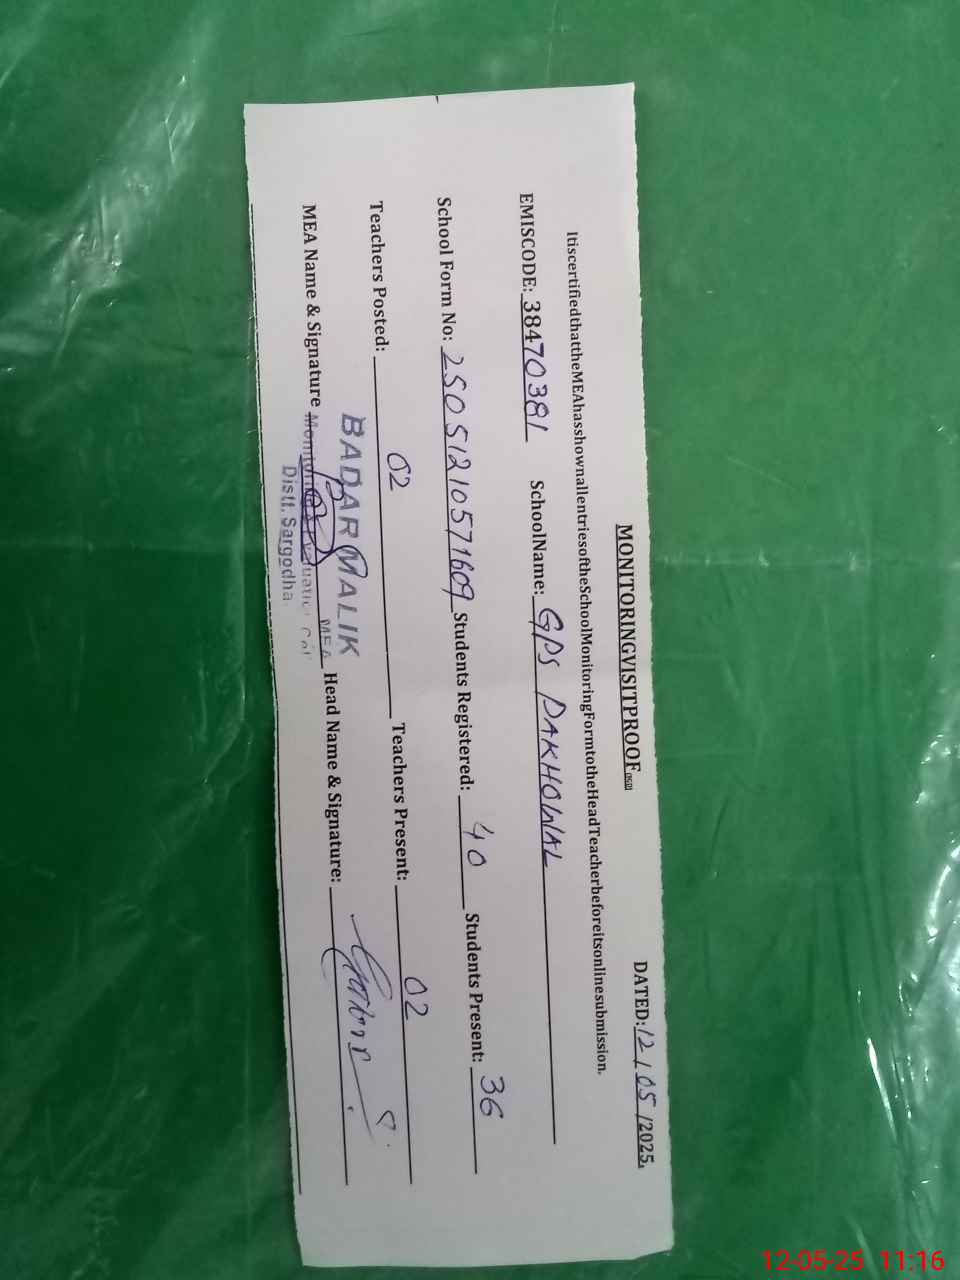 MONITORINGVISITPROOF DATED: 12/05/2025.
ItiscertifiedthattheMEAhasshownallentriesoftheSchoolMonitoringFormtotheHeadTeacherbeforeitsonlinesubmission.
EMISCODE: 38470381 SchoolName: GPS DAKHOWAL
School Form No: 25051210571609 Students Registered: 40 Students Present: 36
Teachers Posted: 02 Teachers Present: 02
BADAR MALIK
MEA
MEA Name & Signature Head Name & Signature:
Distt. Sargodha.
12-05-25 11:16